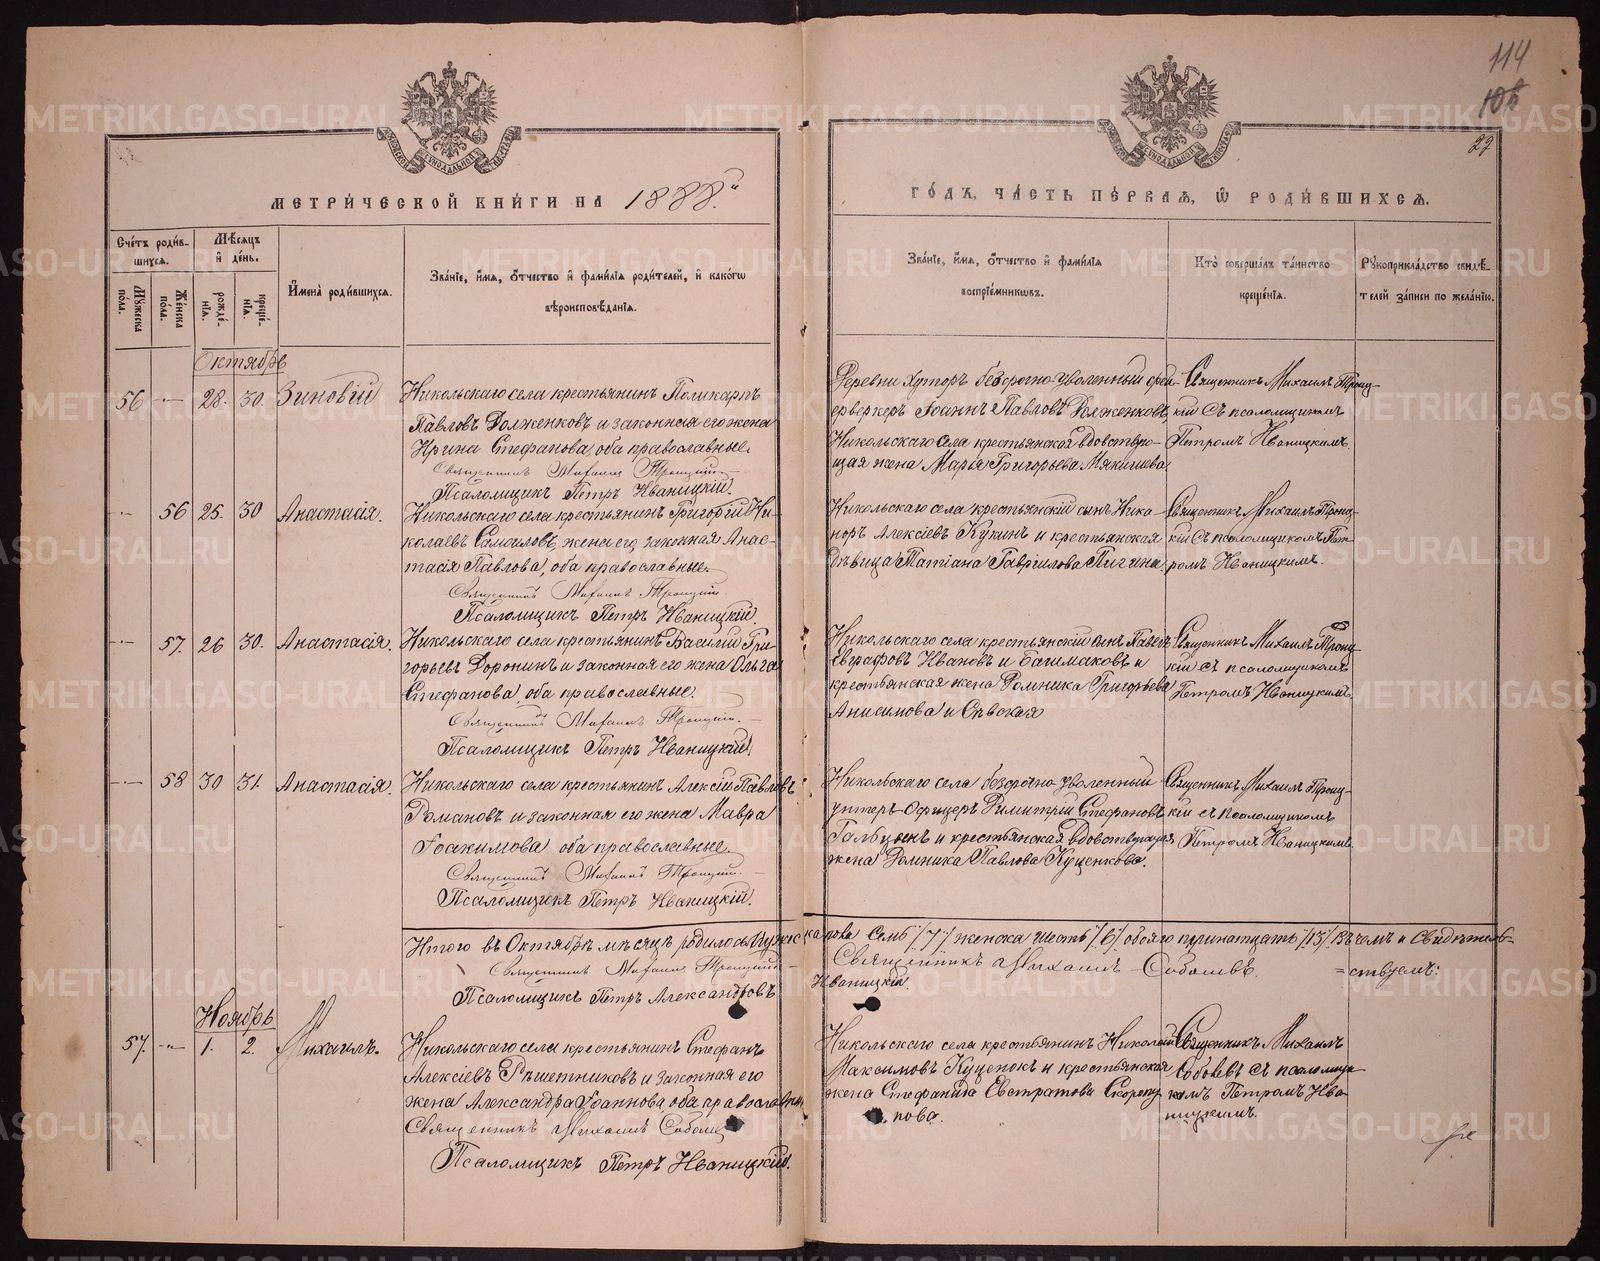 114
10
22
МЕТРИ́ЧЕСКОЙ КНИ́ГИ НА 1888.й
ГО́ДЪ, ЧА́СТЬ ПЕ́РВАЯ, Ѽ РОДИ́ВШИХСЯ.
Сче́тъ роди́в-
шихся.
Мѣ́сяцъ
и҆ де́нь.
Мꙋжеска
по́ла.
Же́нска
по́ла.
рожде́-
нїя.
креще́-
нїя.
И҆мена̀ роди́вшихся.
Зва́нїе, и҆́мя, ѻ҆́тчество и҆ фами́лїя роди́телей, и҆ како́гѡ
вѣроисповѣ́данїя.
Зва́нїе, и҆́мя, ѻ҆́тчество и҆ фами́лїя
воспрїе́мникѡвъ.
Кто̀ соверша́лъ та́инство
креще́нїя.
Рꙋкоприкла́дство свидѣ́-
телей за́писи по жела́нїю.
Октябрь
56 28. 30. Зиновій
Никольскаго села крестьянинъ Поликарпъ
Павловъ Долженковъ и законная его жена
Ирина Стефанова, оба православные.
Священникъ Михаилъ Троицкій
Псаломщикъ Петръ Иваницкій.
Деревни Хуторъ безсрочно-уволенный
Іоаннъ Павловъ Долженковъ,
Никольскаго села крестьянская вдовствую-
щая жена Марія Григорьева Мякишева
Священникъ Михаилъ Троиц-
кій съ псаломщикомъ
Петромъ Иваницкимъ.
56 25. 30 Анастасія.
Никольскаго села крестьянинъ Григорій Ни-
колаевъ Самойловъ, жена его законная Анас-
тасія Павлова, оба православные.
Священникъ Михаилъ Троицкій.
Псаломщикъ Петръ Иваницкій.
Никольскаго села крестьянскій сынъ Ника-
норъ Алексіевъ Кукинъ и крестьянская
дѣвица Татіана Гавріилова Пигина.
Священникъ Михаилъ Троиц-
кій съ псаломщикомъ Пет-
ромъ Иваницкимъ.
57. 26 30. Анастасія.
Никольскаго села крестьянинъ Василій Гри-
горьевъ Доронинъ и законная его жена Ольга
Стефанова, оба православные.
Священникъ Михаилъ Троицкій.
Псаломщикъ Петръ Иваницкій.
Никольскаго села крестьянскій сынъ Павелъ
Евграфовъ Ивановъ и Башмаковъ и
крестьянская жена Домника Григорьева
Анисимова и Сѣвская
Священникъ Михаилъ Троиц-
кій съ псаломщикомъ
Петромъ Иваницкимъ.
58 30 31. Анастасія.
Никольскаго села крестьянинъ Алексій Павловъ
Романовъ и законная его жена Мавра
Іоакимова оба православные.
Священникъ Михаилъ Троицкій.
Псаломщикъ Петръ Иваницкій.
Никольскаго села безсрочно-уволенный
унтеръ-Офицеръ Димитрій Стефановъ
и крестьянская вдовствующая
жена Домника Павлова Куценкова.
Священникъ Михаилъ Троиц-
кій съ псаломщикомъ
Петромъ Иваницкимъ.
Итого въ Октябрѣ мѣсяцѣ родилось мужеска пола семь /7/ женска шесть /6/ обоего тринатцать /13/ въ чемъ и свидѣтель-
ствуемъ:
Священникъ Михаилъ Троицкій
Священникъ Михаилъ Соболевъ.
Псаломщикъ Петръ Александровъ Иваницкій.
Ноябрь
57. 1. 2. Михаилъ.
Никольскаго села крестьянинъ Стефанъ
Алексіевъ Рѣшетниковъ и законная его
жена Александра Іоаннова оба православны
Священникъ Михаилъ Соболевъ
Псаломщикъ Петръ Иваницкій.
Никольскаго села крестьянинъ Николай
Максимовъ Куценко и крестьянская
жена Стефанида Евстратова Скоро
пова.
Священникъ Михаилъ
Соболевъ съ псаломщи-
комъ Петромъ Ива-
ницкимъ.
METRIKI.GASO-URAL.RU